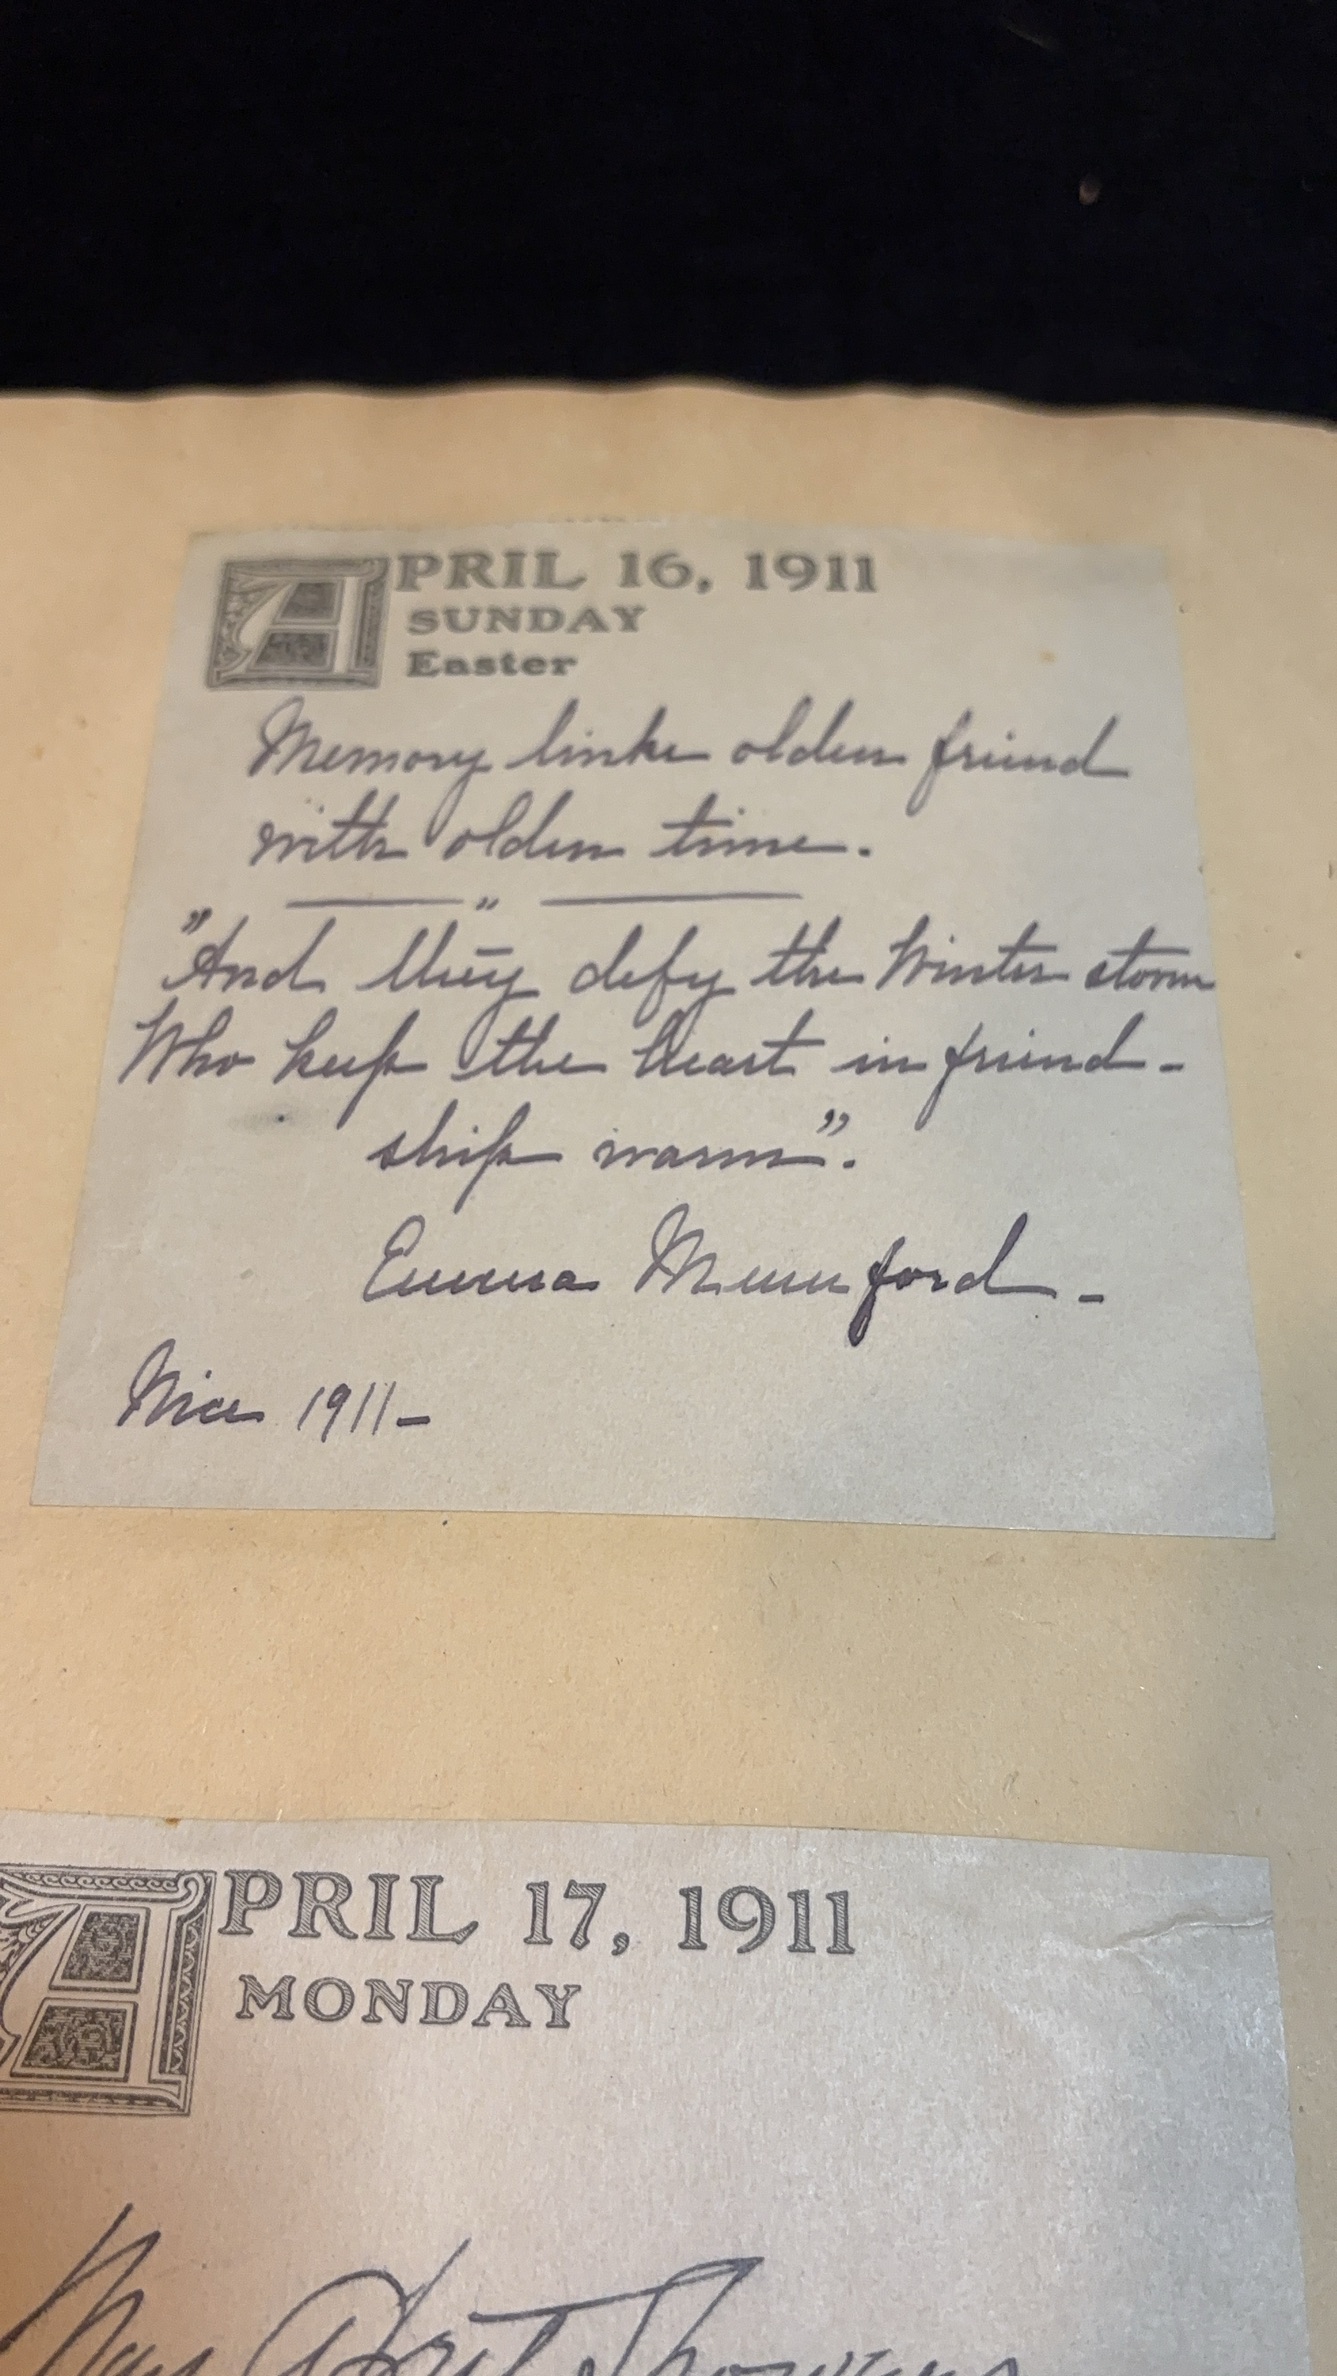 APRIL 16, 1911
SUNDAY
Easter
Memory links olden friend
with olden time.
"And they defy the Winter storm
Who keep the heart in friend-
ship warm".
Emma Mumford -
Nice 1911-
APRIL 17, 1911
MONDAY
May April Showers